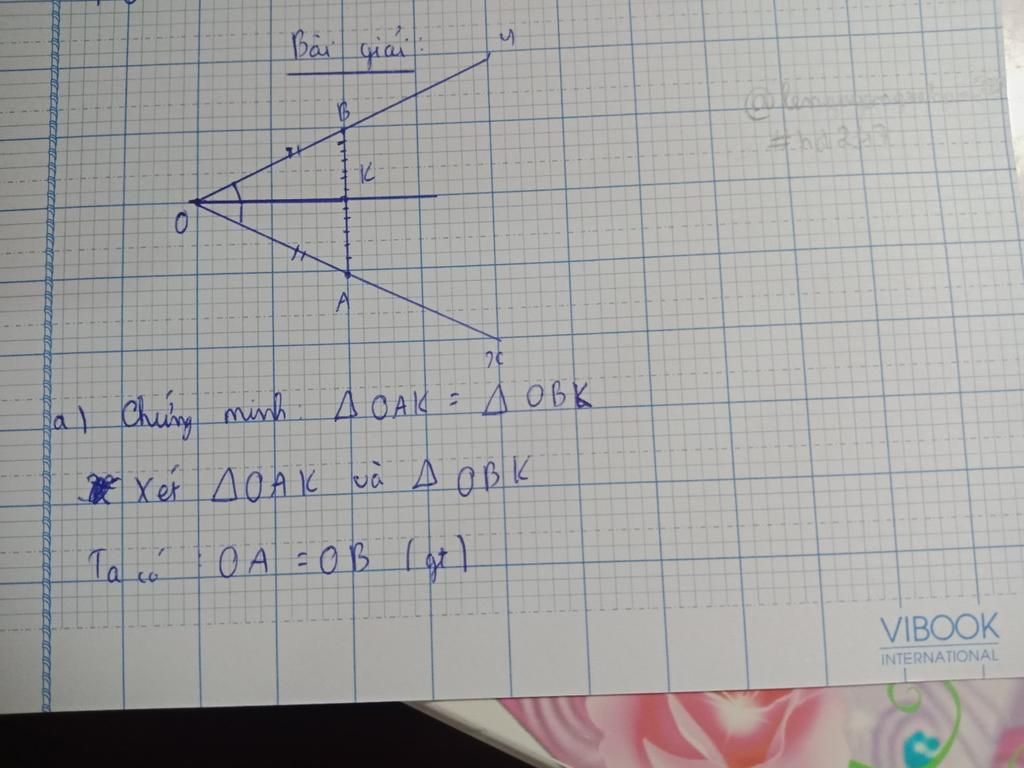 Bài giải:
y
B
K
O
A
x
a) Chứng minh: Δ OAK = Δ OBK
Xét Δ OAK và Δ OBK
Ta có : OA = OB (gt)
VIBOOK
INTERNATIONAL